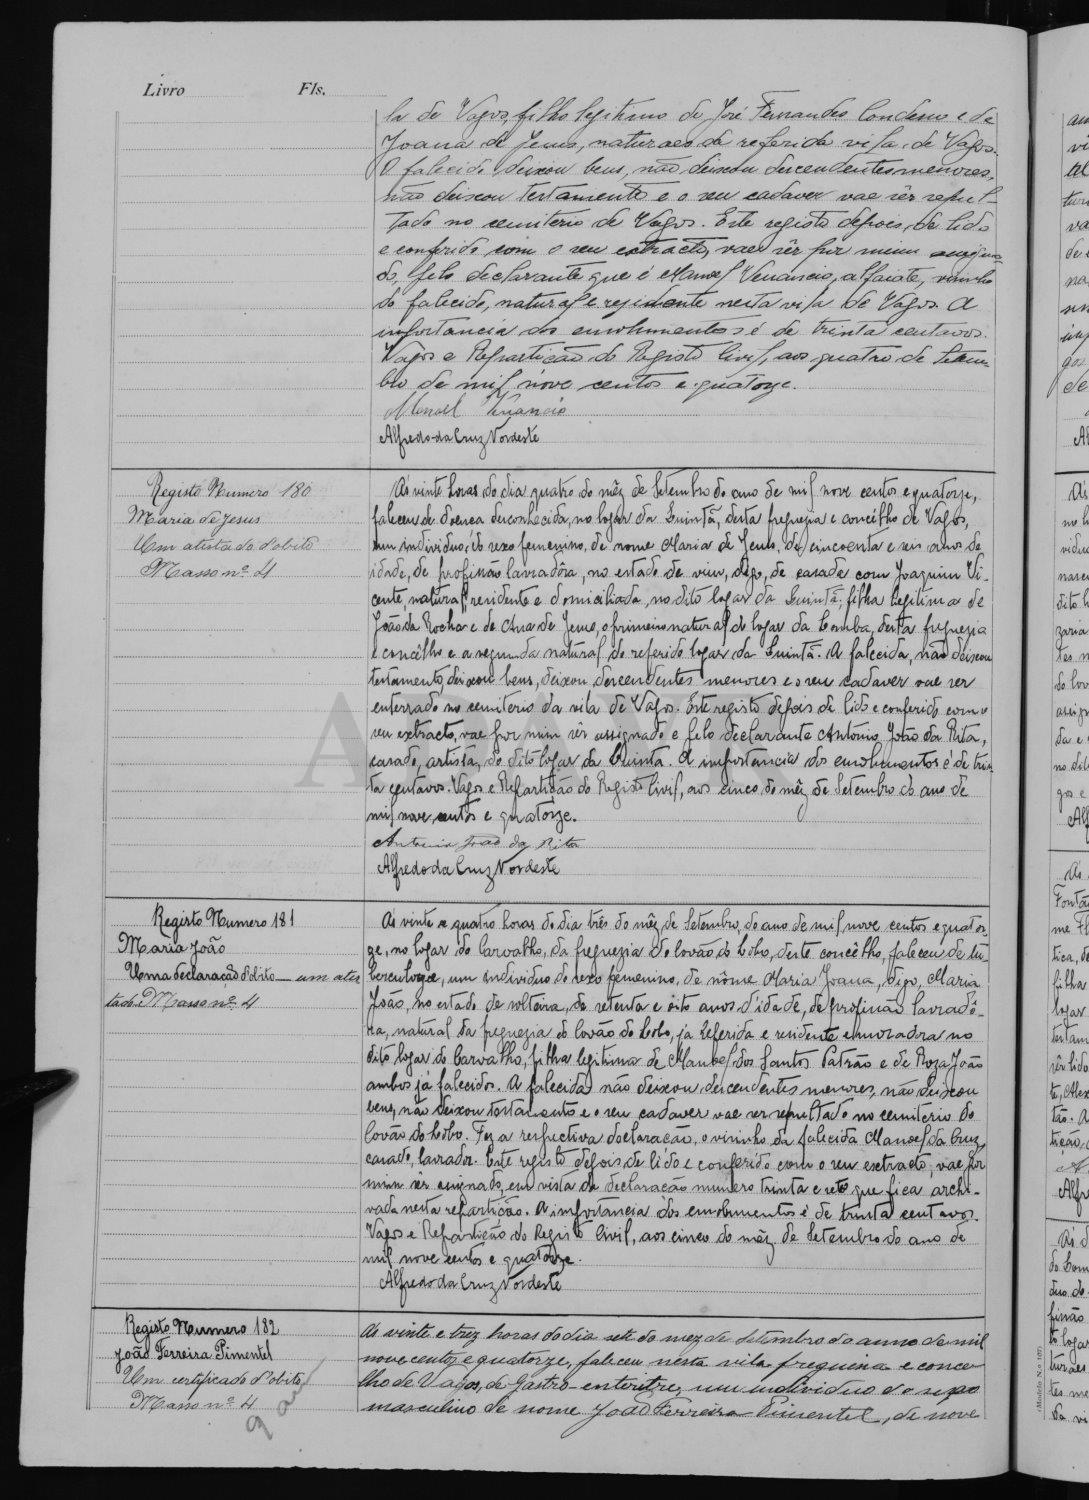 Livro Fls.
la de Vagos, filho legitimo de José Fernandes Condesso e de
Joana de Jesus, naturaes da referida vila de Vagos.
O falecido deixou bens, não deixou descendentes menores,
não deixou testamento e o seu cadaver vae sêr sepul-
tado no cemiterio de Vagos. Este registo depois de lido
e conferido com o seu extracto, vae sêr por mim assigna-
do, pelo declarante que é Manoel Venancio, alfaiate, visinho
do falecido, natural e residente nesta vila de Vagos. A
importancia dos emolumentos é de trinta centavos.
Vagos e Repartição do Registo Civil, aos quatro de Setem-
bro de mil nove centos e quatorze.
Manoel Venancio
Alfredo da Cruz Nordeste
Registo Numero 180
Maria de Jesus
Um atestado d'obito
Masso nº 4
Ás vinte horas do dia quatro do mêz de Setembro do ano de mil nove centos e quatorze,
faleceu de doença desconhecida, no logar da Quintã, desta freguezia e concêlho de Vagos,
um individuo do sexo femenino, de nome Maria de Jesus, de cincoenta e seis anos de
idade, de profissão lavradôra, no estado de viuv, digo, de casada com Joaquim Vi-
cente, natural, residente e domiciliada, no dito logar da Quintã, filha legitima de
João da Rocha e de Ana de Jesus, o primeiro natural do logar da Lomba, desta freguezia
e concêlho e a segunda natural do referido logar da Quintã. A falecida, não deixou
testamento, deixou bens, deixou descendentes menores e o seu cadaver vae ser
enterrado no cemiterio da vila de Vagos. Este registo depois de lido e conferido com o
seu extracto, vae por mim sêr assignado e pelo declarante António João da Rita,
casado, artista, do dito logar da Quintã. A importancia dos emolumentos é de trin-
ta centavos. Vagos e Repartição do Registo Civil, aos cinco do mêz de Setembro do ano de
mil nove centos e quatorze.
Antonio João da Rita
Alfredo da Cruz Nordeste
Registo Numero 181
Maria João
Uma declaração d'obito — um ates
tado Masso nº 4
Ás vinte e quatro horas do dia três do mêz de Setembro, do ano de mil nove centos e quator-
ze, no logar do Carvalho, da freguezia do Covão do Lobo, deste concêlho, faleceu de tu-
berculoze, um individuo do sexo femenino, de nôme Maria Joana, digo, Maria
João, no estado de solteira, de setenta e oito anos d'idade, de profissão lavradô-
ra, natural da freguezia do Covão do Lobo, ja referida e residente e moradra no
dito logar do Carvalho, filha legitima de Manoel dos Santos Patrão e de Roza João
ambos já falecidos. A falecida não deixou descendentes menores, não deixou
bens, não deixou testamento e o seu cadaver vae ser sepultado no cemiterio do
Covão do Lobo. Fez a respectiva declaração, o visinho da falecida Manoel da Cruz,
casado, lavrador. Este registo depois de lido e conferido com o seu extracto, vae por
mim sêr assignado, em vista da declaração numero trinta e sete que fica archi-
vada nesta repartição. A importancia dos emolumentos é de trinta centavos.
Vagos e Repartição do Registo Civil, aos cinco do mêz de Setembro do ano de
mil nove centos e quatorze.
Alfredo da Cruz Nordeste
Registo Numero 182
João Ferreira Pimentel
Um certificado d'obito
Masso nº 4
Ás vinte e trez horas do dia sete do mez de Setembro do anno de mil
nove centos e quatorze, faleceu nesta vila freguezia e conce-
lho de Vagos, de gastro-enteritre, um individuo do sexo
masculino de nome João Ferreira Pimentel, de nove